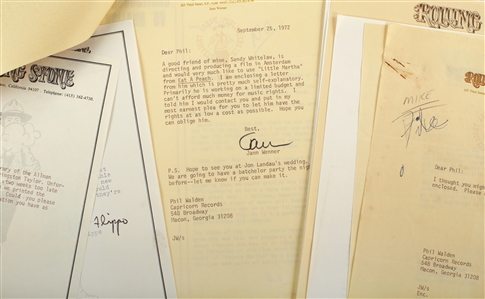 ING STONE
California 94107. Telephone: (415) 362-4730.
rary of the Allman
two weeks too late
we printed the
Could you please
ion you have as
Filippo
September 25, 1972
Dear Phil:
A good friend of mine, Sandy Whitelaw, is
directing and producing a film in Amsterdam
and would very much like to use "Little Martha"
from Eat A Peach. I am enclosing a letter
from him which is pretty much self-explanatory.
Primarily he is working on a limited budget and
can't afford much money for music rights. I
told him I would contact you and put in my
most earnest plea for you to let him have the
rights at as low a cost as possible. Hope you
can oblige him.
Best,
Jann
Jann Wenner
P.S. Hope to see you at Jon Landau's wedding.
We are going to have a batchelor party the nig
before--let me know if you can make it.
Phil Walden
Capricorn Records
548 Broadway
Macon, Georgia 31208
JW/s
ROLLING
ROLLING
MIKE
Dear Phil:
I thought you migh
enclosed. Please
Phil Walden
Capricorn Records
548 Broadway
Macon, Georgia 31208
JW/s
Enc.